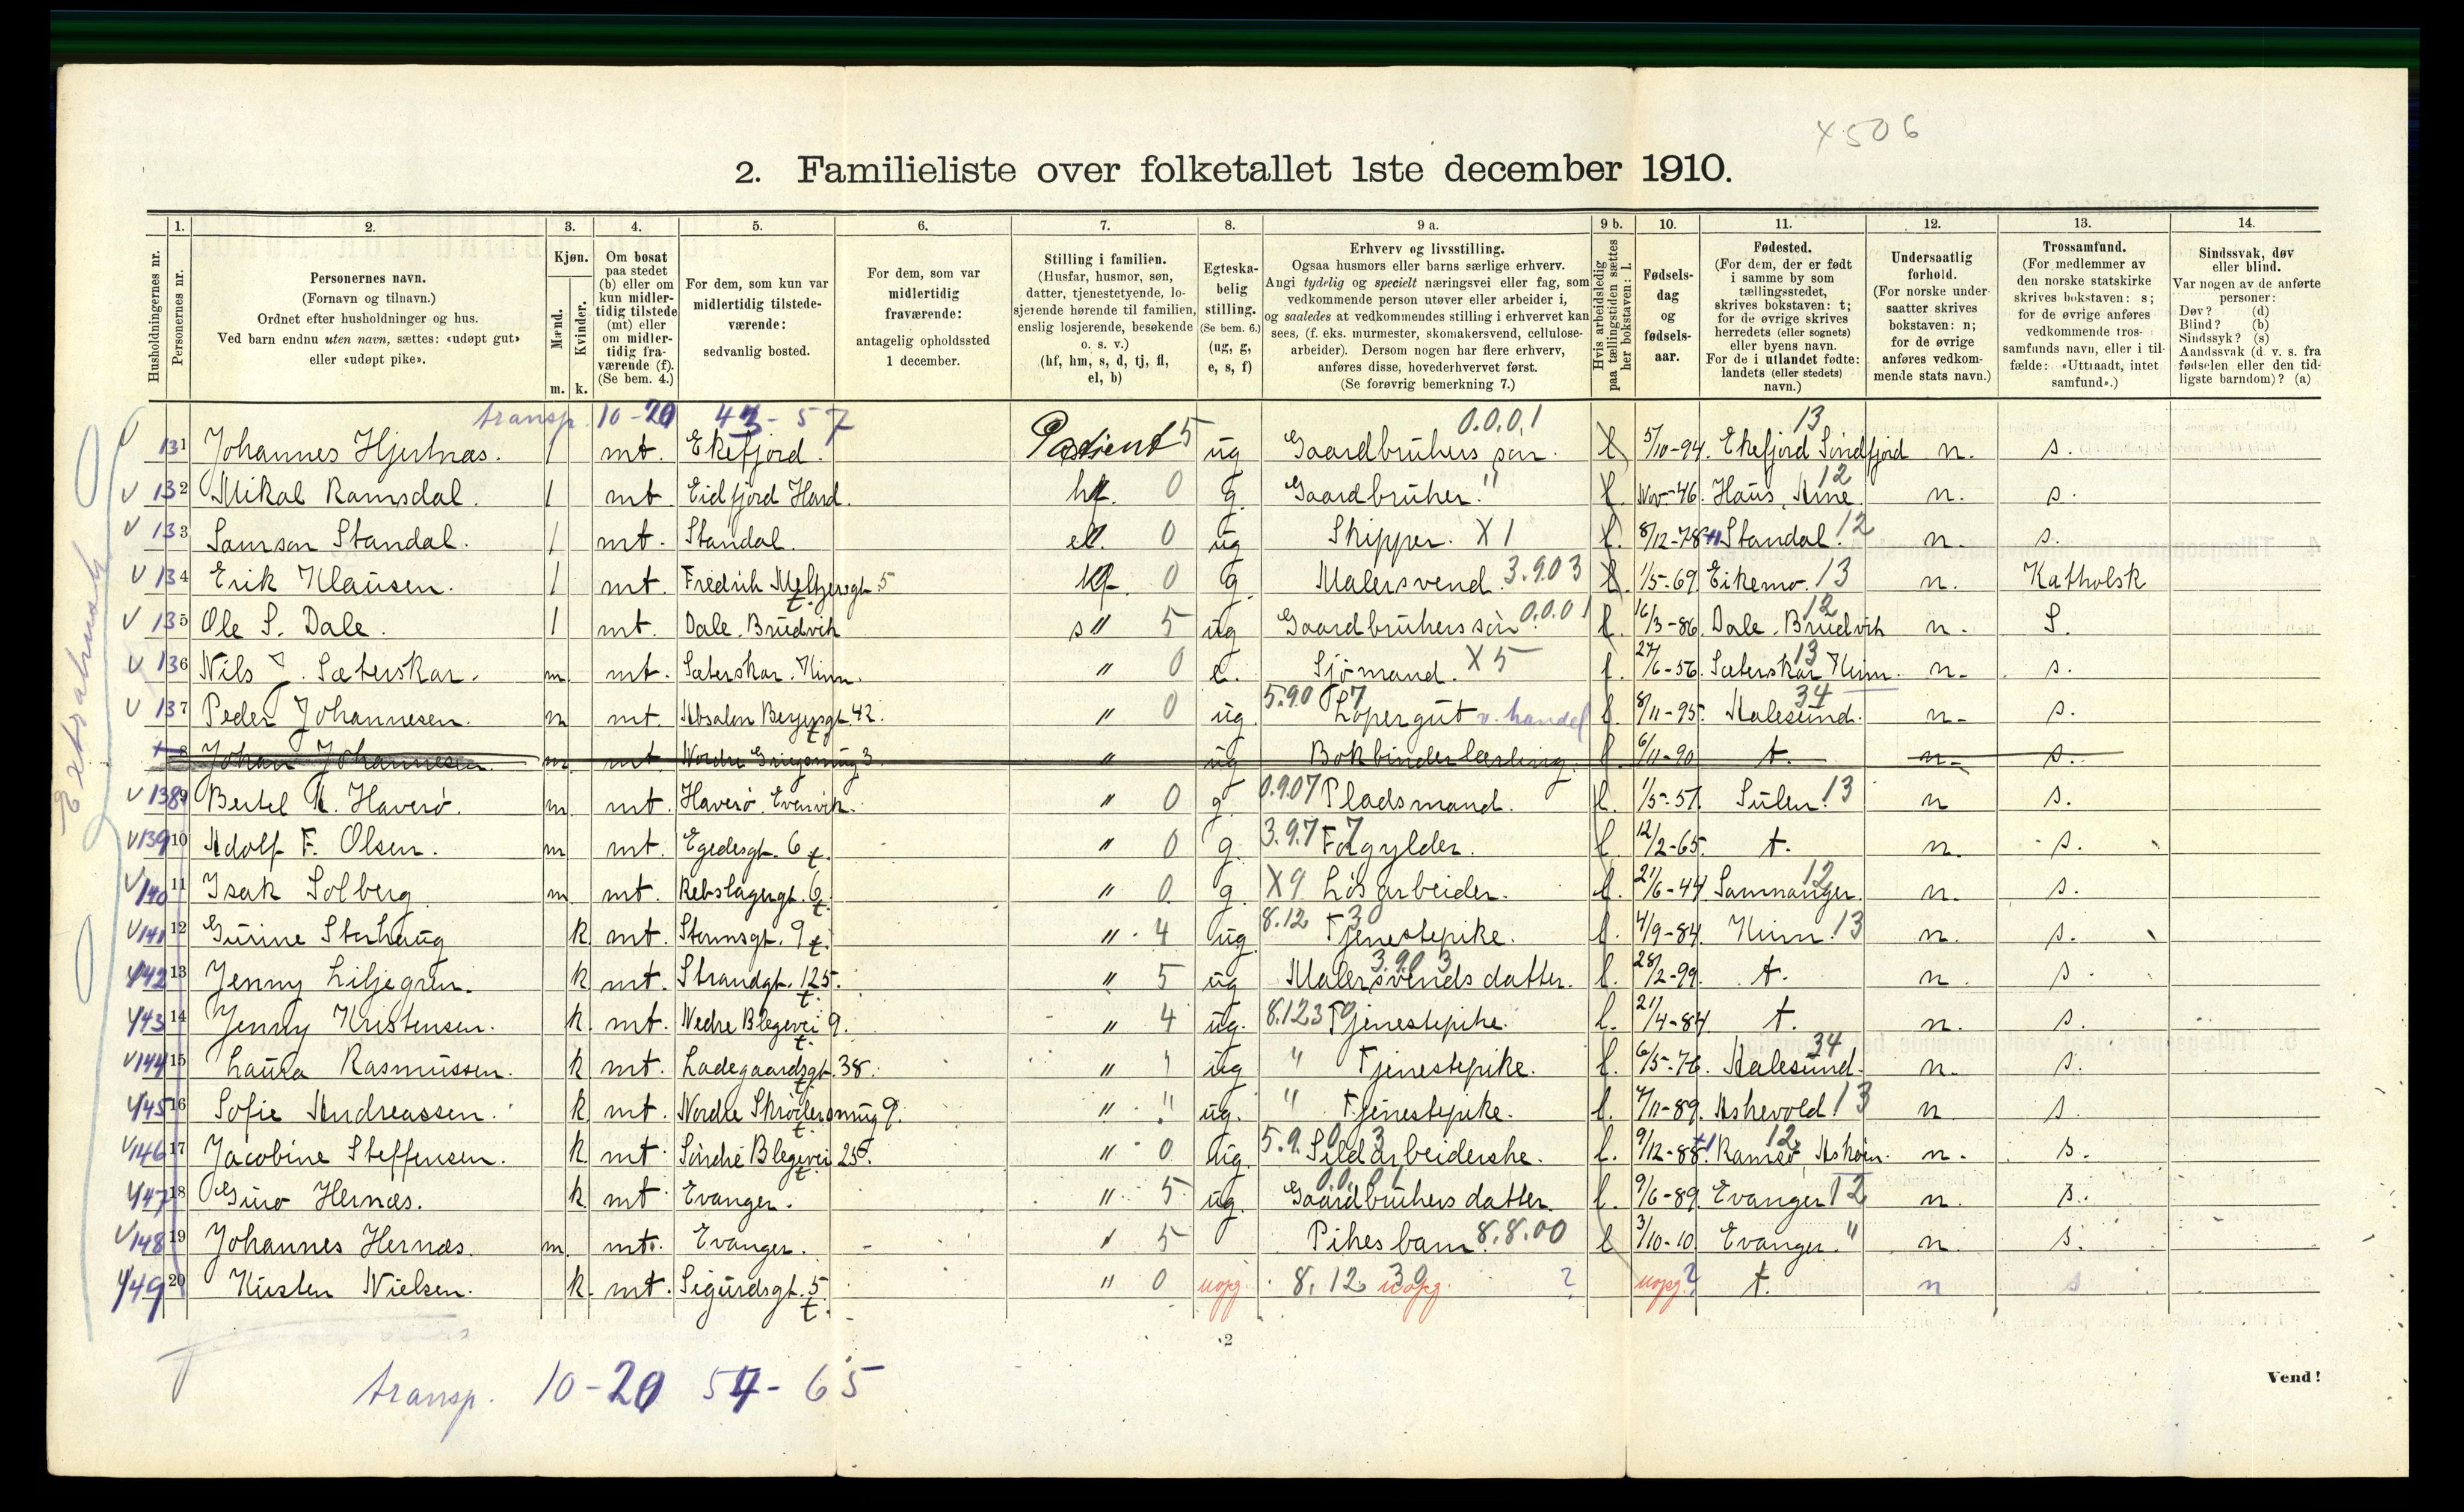 X506
2. Familieliste over folketallet 1ste december 1910.
1. 2. 3. 4. 5. 6. 7. 8. 9 a. 9 b. 10. 11. 12. 13. 14.
Husholdningernes nr.
Personernes nr.
Personernes navn.
(Fornavn og tilnavn.)
Ordnet efter husholdninger og hus.
Ved barn endnu uten navn, sættes: «udøpt gut»
eller «udøpt pike».
Kjøn.
Mænd.
Kvinder.
m. k.
Om bosat
paa stedet
(b) eller om
kun midler-
tidig tilstede
(mt) eller
om midler-
tidig fra-
værende (f).
(Se bem. 4.)
For dem, som kun var
midlertidig tilstede-
værende:
sedvanlig bosted.
For dem, som var
midlertidig
fraværende:
antagelig opholdssted
1 december.
Stilling i familien.
(Husfar, husmor, søn,
datter, tjenestetyende, lo-
sjerende hørende til familien,
enslig losjerende, besøkende
o. s. v.)
(hf, hm, s, d, tj, fl,
el, b)
Egteska-
belig
stilling.
(Se bem. 6.)
(ug, g,
e, s, f)
Erhverv og livsstilling.
Ogsaa husmors eller barns særlige erhverv.
Angi tydelig og specielt næringsvei eller fag, som
vedkommende person utøver eller arbeider i,
og saaledes at vedkommendes stilling i erhvervet kan
sees, (f. eks. murmester, skomakersvend, cellulose-
arbeider). Dersom nogen har flere erhverv,
anføres disse, hovederhvervet først.
(Se forøvrig bemerkning 7.)
Hvis arbeidsledig
paa tællingstiden sættes
her bokstaven: l.
Fødsels-
dag
og
fødsels-
aar.
Fødested.
(For dem, der er født
i samme by som
tællingsstedet,
skrives bokstaven: t;
for de øvrige skrives
herredets (eller sognets)
eller byens navn.
For de i utlandet fødte:
landets (eller stedets)
navn.)
Undersaatlig
forhold.
(For norske under-
saatter skrives
bokstaven: n;
for de øvrige
anføres vedkom-
mende stats navn.)
Trossamfund.
(For medlemmer av
den norske statskirke
skrives bokstaven: s;
for de øvrige anføres
vedkommende tros-
samfunds navn, eller i til-
fælde: «Uttraadt, intet
samfund».)
Sindssvak, døv
eller blind.
Var nogen av de anførte
personer:
Døv? (d)
Blind? (b)
Sindssyk? (s)
Aandssvak (d. v. s. fra
fødselen eller den tid-
ligste barndom)? (a)
transp. 10-20 43-57
131 Johannes Hjertnæs. 1 mt. Ekefjord. Patient 5 ug Gaardbrukers søn. 0.0.01 l 5/10-94. Ekefjord Söndfjord 13 n. s.
132 Mikal Ramsdal. 1 mt Eidfjord Hard. hf. 0 g. Gaardbruker. " l Nov-46. Haus, Arne 12 n. s.
133 Samson Standal. 1 mt. Standal. el. 0 ug Skipper. X1 l. 8/12-78 +1 Standal. 12 n. s.
134 Erik Klausen. 1 mt. Fredrik Meltzersgt. 5 t. hf. 0 g. Malersvend. 3.903 l. 1/5-69 Eikemo. 13 n. Katholsk
135 Ole S. Dale. 1 mt. Dale. Brudvik s " 5 ug Gaardbrukers søn 0.0.01 l. 16/3-86. Dale. Brudvik 12 n. S.
136 Nils J. Sæterskar. m. mt. Sæterskar. Kinn. " 0 e. Sjömand. X5 l. 27/6-56. Sæterskar Kinn. 13 n. s.
137 Peder Johannesen. m mt. Absalon Beyersgt. 42. t " 0 ug. 5.90 7 Löpergut v. handel l. 8/11-95. Aalesund. 34 n. s.
8 Johan Johannesen. m mt Nordre Griegsmug 3 " ug Bokbinderlærling. l 6/11-90 t. n. s.
138 9 Bertel A. Haverö. m. mt. Haverö. Evenvik. " 0 g 0.907 Pladsmand. l. 1/5-51. Sulen. 13 n s.
139 10 Adolf F. Olsen. m mt. Egedesgt. 6 t. " 0 g. 3.9.7 7 Forgylder. l 12/2-65. t. n. s.
140 11 Isak Solberg m. mt. Rebslagergt. 6 t " 0. g. X9 Lösarbeider. l. 21/6-44 Samnanger. 12 n. s.
141 12 Gurine Storhaug k mt. Stormsgt. 9 t. " 4 ug 8.12 30 Tjenestepike. l. 4/9-84. Kinn. 13 n. s.
142 13 Jenny Liljegren. k mt. Strandgt. 125. t. " 5 ug 3.90 3 Malersvends datter. l. 28/2-99. t. n. s.
143 14 Jenny Kristensen. k. mt. Nedre Blegevei 9. t. " 4 ug. 8.123 0 Tjenestepike. l. 21/4-84. t. n. s.
144 15 Laura Rasmussen. k mt. Ladegaardsgt. 38. t. " " ug " Tjenestepike. l. 6/5-76. Aalesund. 34 n. s.
145 16 Sofie Andreassen. k mt. Nordre Skrödersmug 9. t " " ug. " Tjenestepike. l. 7/11-89. Askevold 13 n s.
146 17 Jacobine Steffensen. k. mt. Söndre Blegevei 25. t. " 0 ug. 5.9. 0 3 Sildarbeiderske. l. 9/12-88 +1 Ramsö, Asköen. 12 n. s.
147 18 Guro Hernæs. k. mt Evanger. " 5 ug. 0.0.01 Gaardbrukers datter. l. 9/6-89. Evanger 12 n. s.
148 19 Johannes Hernæs. m. mt. Evanger. " 5 Pikesbarn. 8.8.00 l 3/10-10 Evanger. " n. s.
149 20 Kirsten Nielsen. k. mt. Sigurdsgt. 5 t. " 0 uopg. 8.12 30 uopg. ? uopg.? t. n s
Extrahuush
2
transp. 10-20 54-65
Vend!